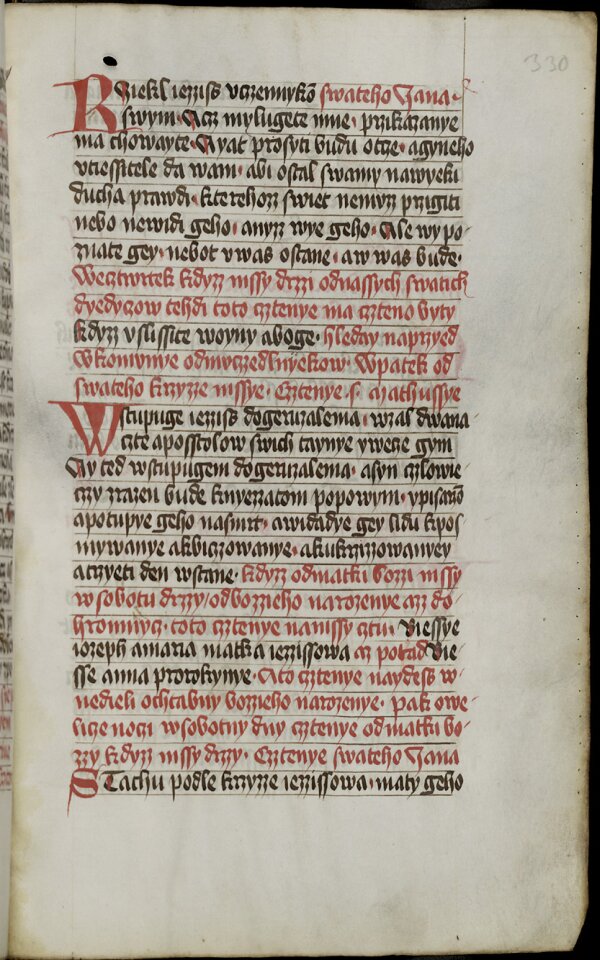 330
Rziekl iezziss vczennykō swateho Jana
swym · Acz mylugete mne · przikazanye
ma chowayte · Ayat prosyti budu otcze · agyneho
vtiessitele da wam · abi ostal swamy nawyeki
ducha prawdi · kterehozz swiet nemuz przigiti
nebo newidi geho · anyzz wye geho · Ale wy po-
znate gey · nebot vwas ostane · aw was bude ·
Wecztwrtek kdyzz mssy drzzi odnassych swatich
dyedyczow tehdi toto cztenye ma czteno byty
kdyzz vslissite woyny aboge · hleday naprzyed
Wkomunye odmyczedlnyekow · Wpatek od
swateho krzyzze mssye · Cztenye · s · Mathussye
Wstupuge iezziss dogeruzalema · wzal dwana-
czte aposstolow swich taynye ywecze gym
Ay ted wstupugem dogeruzalema · asyn czlowie-
czy zrazen bude knyezzatom popowym · ypisarō
apotupye geho nasmrt · awidadye gey lidu kpos
mywanye akbiczowanye · akukrzizzowanyey
atrzyeti den wstane · kdyzz odmatki bozzi mssy
w sobotu drzzy odbozzieho narozenye azz do-
hromnycz · toto cztenye namssy cztu · Biessye
iozeph amaria matka iezzissowa az potad Bie-
sse anna prorokynye · Ato cztenye naydess w-
nedieli ochtabny bozzieho narozenye · pak owe-
licze noczi wsobotny dny cztenye odmatki bo-
zzy kdyzz mssy drzzy · Cztenye swateho Jana
STachu podle krzyzze iezzissowa · maty geho